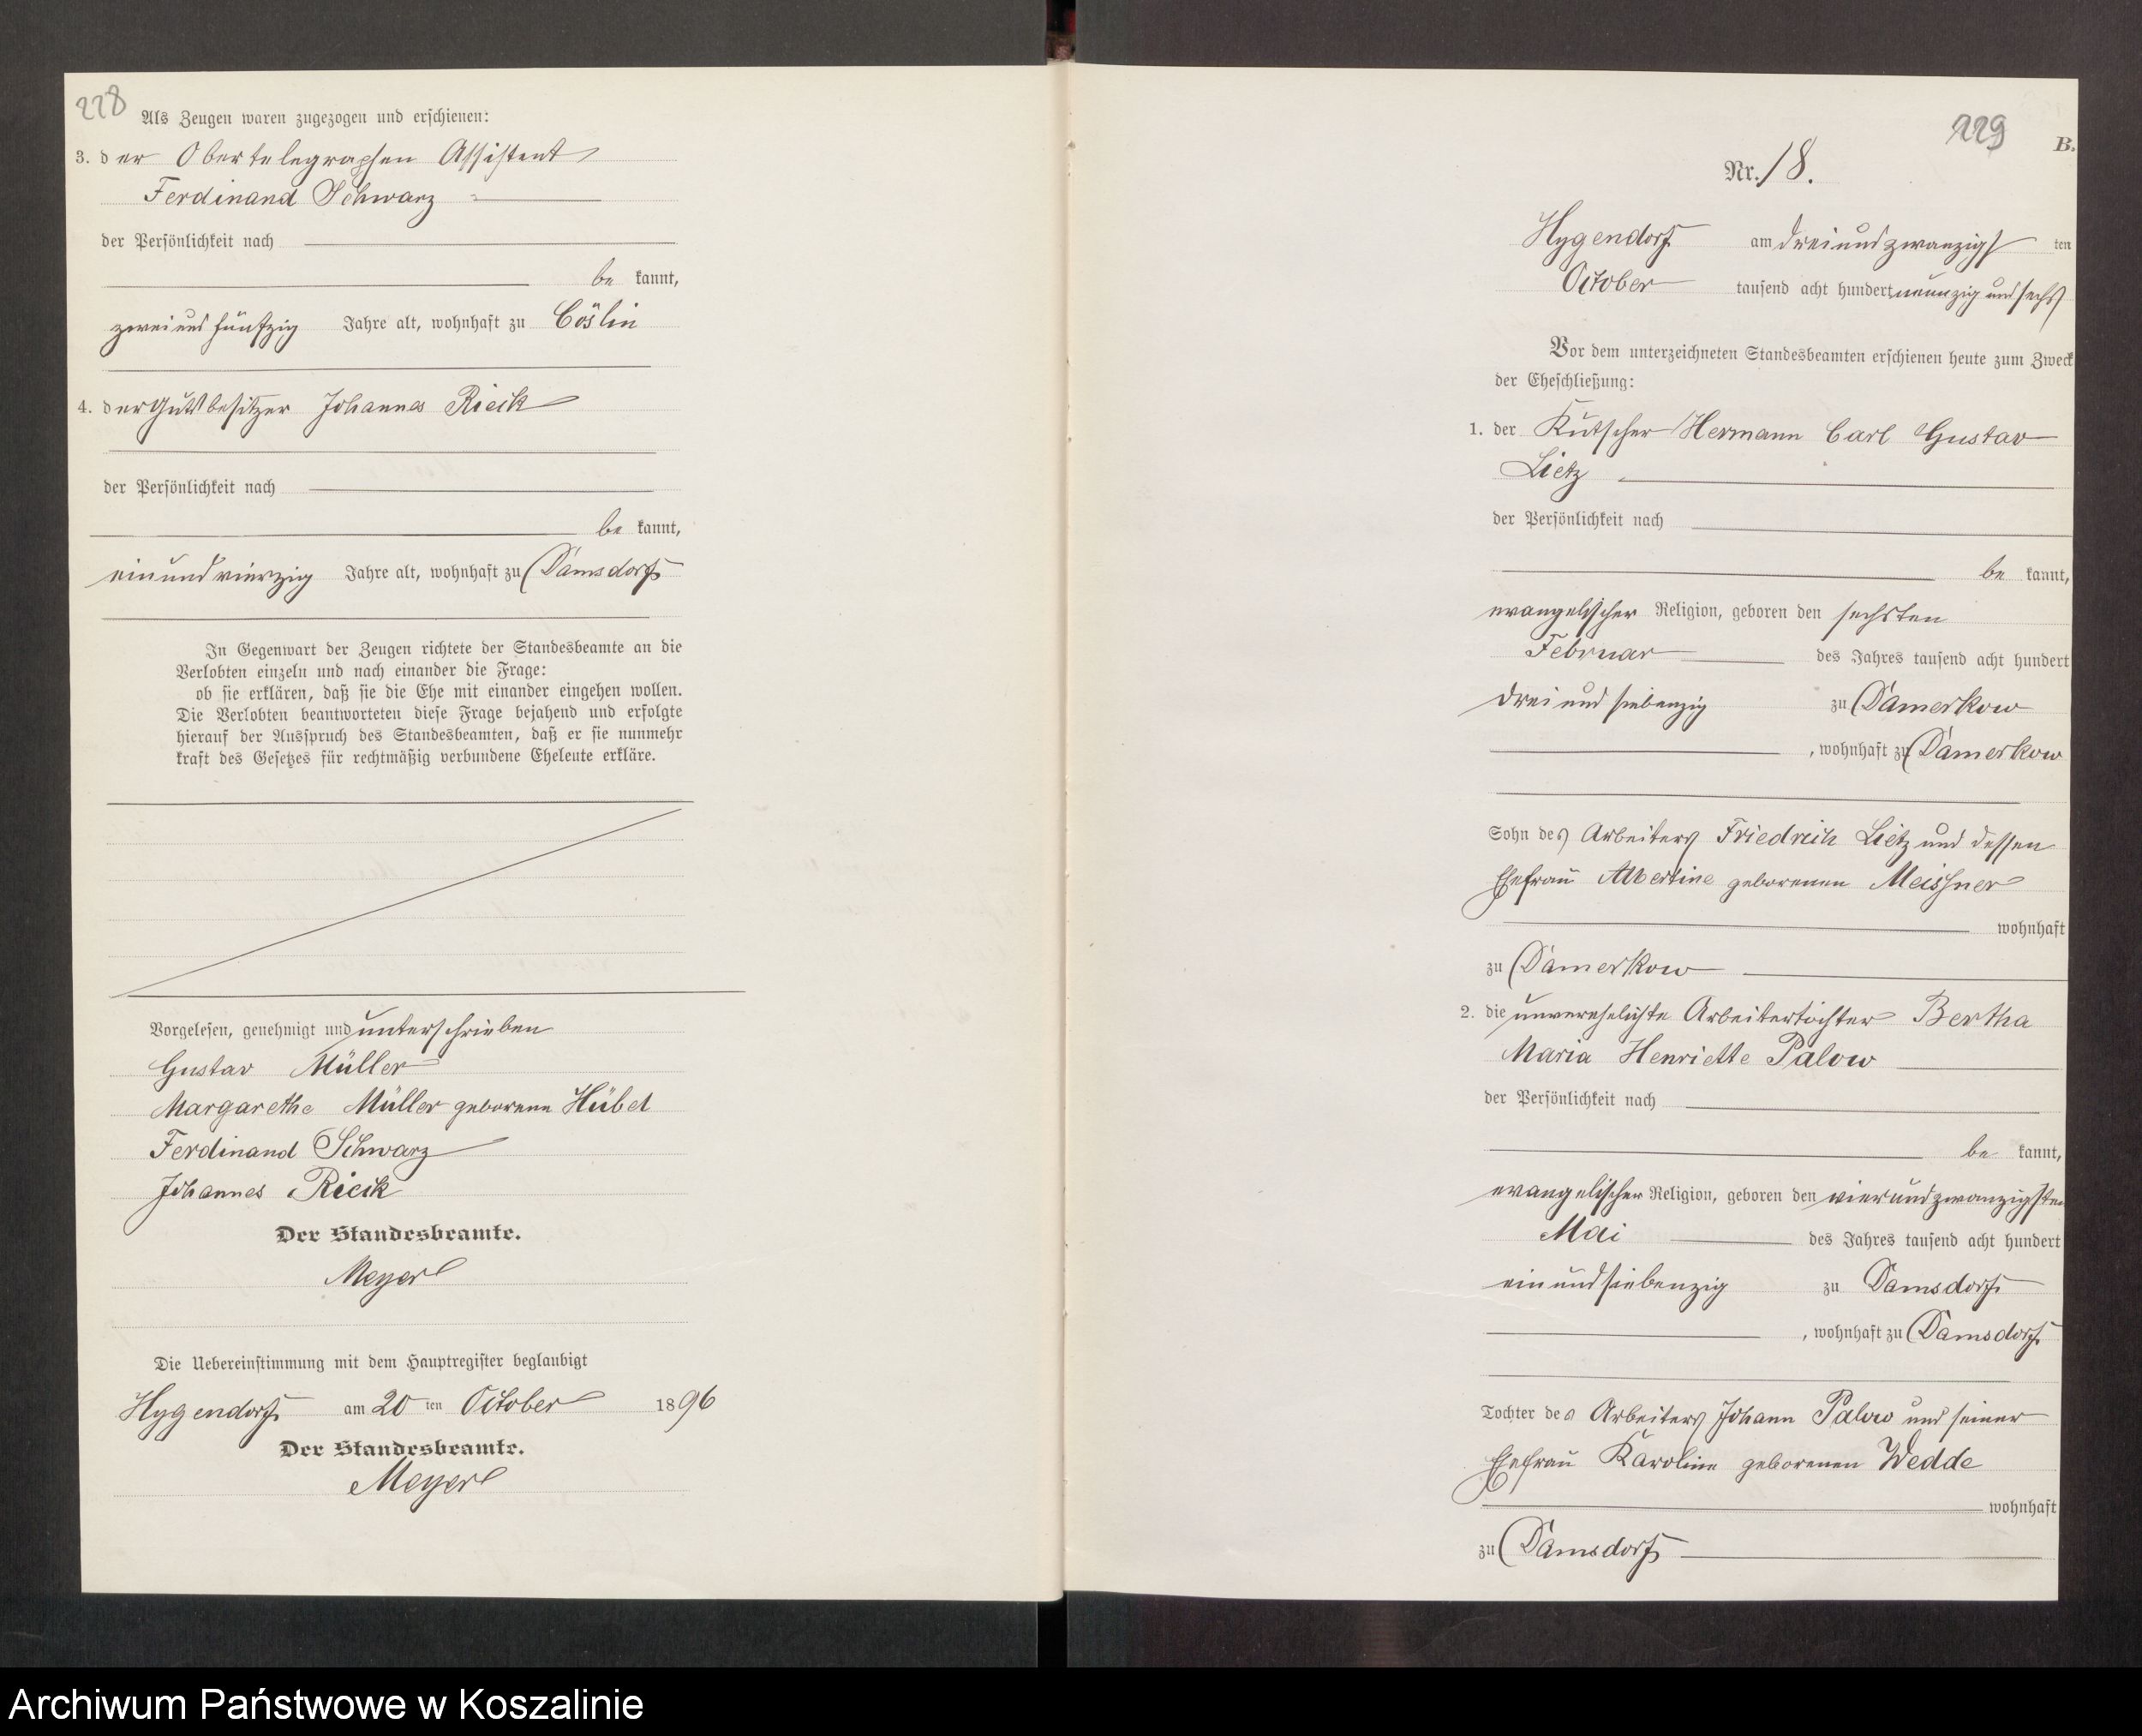 228
Als Zeugen waren zugezogen und erschienen:
3. der Obertelegraphen Assistent
Ferdinand Schwarz
der Persönlichkeit nach
be kannt,
zwei und fünfzig Jahre alt, wohnhaft zu Cöslin
4. der Gutsbesitzer Johannes Rieck
der Persönlichkeit nach
be kannt,
ein und vierzig Jahre alt, wohnhaft zu Damsdorf
In Gegenwart der Zeugen richtete der Standesbeamte an die
Verlobten einzeln und nach einander die Frage:
ob sie erklären, daß sie die Ehe mit einander eingehen wollen.
Die Verlobten beantworteten diese Frage bejahend und erfolgte
hierauf der Ausspruch des Standesbeamten, daß er sie nunmehr
kraft des Gesetzes für rechtmäßig verbundene Eheleute erkläre.
Vorgelesen, genehmigt und unterschrieben
Gustav Müller
Margarethe Müller geborene Hübel
Ferdinand Schwarz
Johannes Rieck
Der Standesbeamte.
Meyer
Die Uebereinstimmung mit dem Hauptregister beglaubigt
Hygendorf am 20 ten October 1896
Der Standesbeamte.
Meyer
229
B.
Nr. 18.
Hygendorf am dreiundzwanzigs ten
October tausend acht hundert neunzig und sechs
Vor dem unterzeichneten Standesbeamten erschienen heute zum Zweck
der Eheschließung:
1. der Kutscher Hermann Carl Gustav
Lietz
der Persönlichkeit nach
be kannt,
evangelischer Religion, geboren den sechsten
Februar des Jahres tausend acht hundert
drei und siebenzig zu Damerkow
, wohnhaft zu Damerkow
Sohn des Arbeiters Friedrich Lietz und dessen
Ehefrau Albertine geborenen Meissner
wohnhaft
zu Damerkow
2. die unverehelichte Arbeitertochter Bertha
Maria Henriette Palow
der Persönlichkeit nach
be kannt,
evangelischer Religion, geboren den vier und zwanzigsten
Mai des Jahres tausend acht hundert
ein und siebenzig zu Damsdorf
, wohnhaft zu Damsdorf
Tochter des Arbeiters Johann Palow und seiner
Ehefrau Karoline geborenen Wedde
wohnhaft
zu Damsdorf
Archiwum Państwowe w Koszalinie